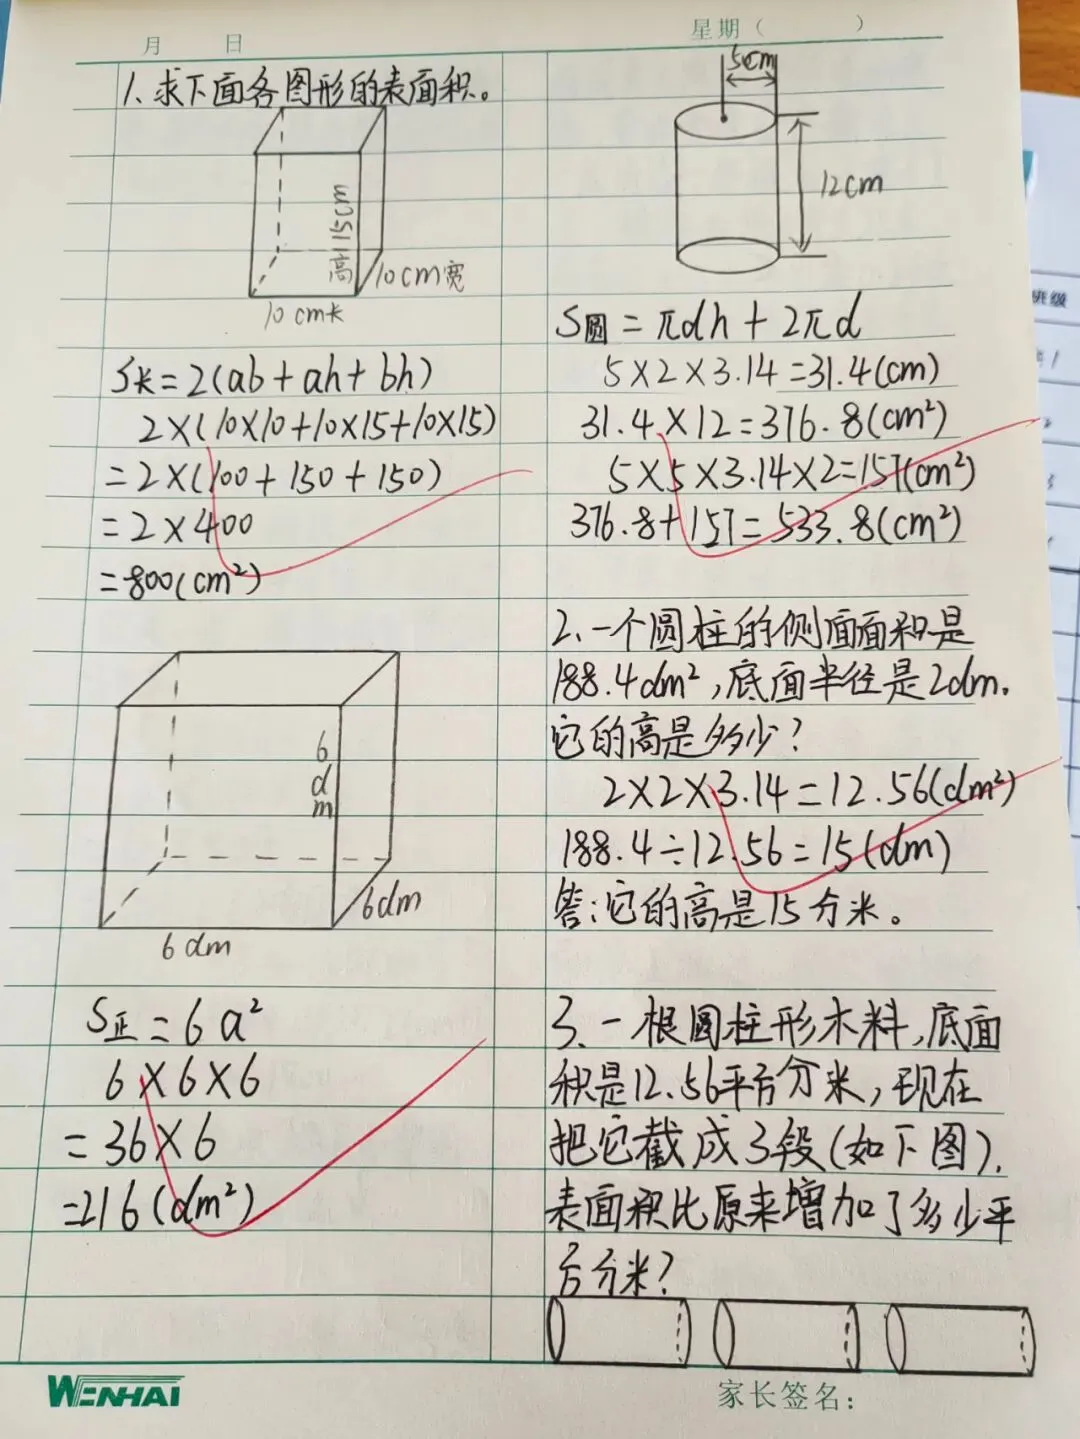 月 日
星期（ ）
1、求下面各图形的表面积。
高15cm
10cm宽
10cm长
S长=2(ab+ah+bh)
2×(10×10+10×15+10×15)
=2×(100+150+150)
=2×400
=800(cm²)
6dm
6dm
6dm
S正=6a²
6×6×6
=36×6
=216(dm²)
5cm
12cm
S圆=πdh+2πd
5×2×3.14=31.4(cm)
31.4×12=376.8(cm²)
5×5×3.14×2=157(cm²)
376.8+157=533.8(cm²)
2、一个圆柱的侧面面积是
188.4dm²,底面半径是2dm.
它的高是多少?
2×2×3.14=12.56(dm²)
188.4÷12.56=15(dm)
答:它的高是15分米。
3、一根圆柱形木料,底面
积是12.56平方分米,现在
把它截成3段(如下图).
表面积比原来增加了多少平
方分米?
WENHAI
家长签名:
班级